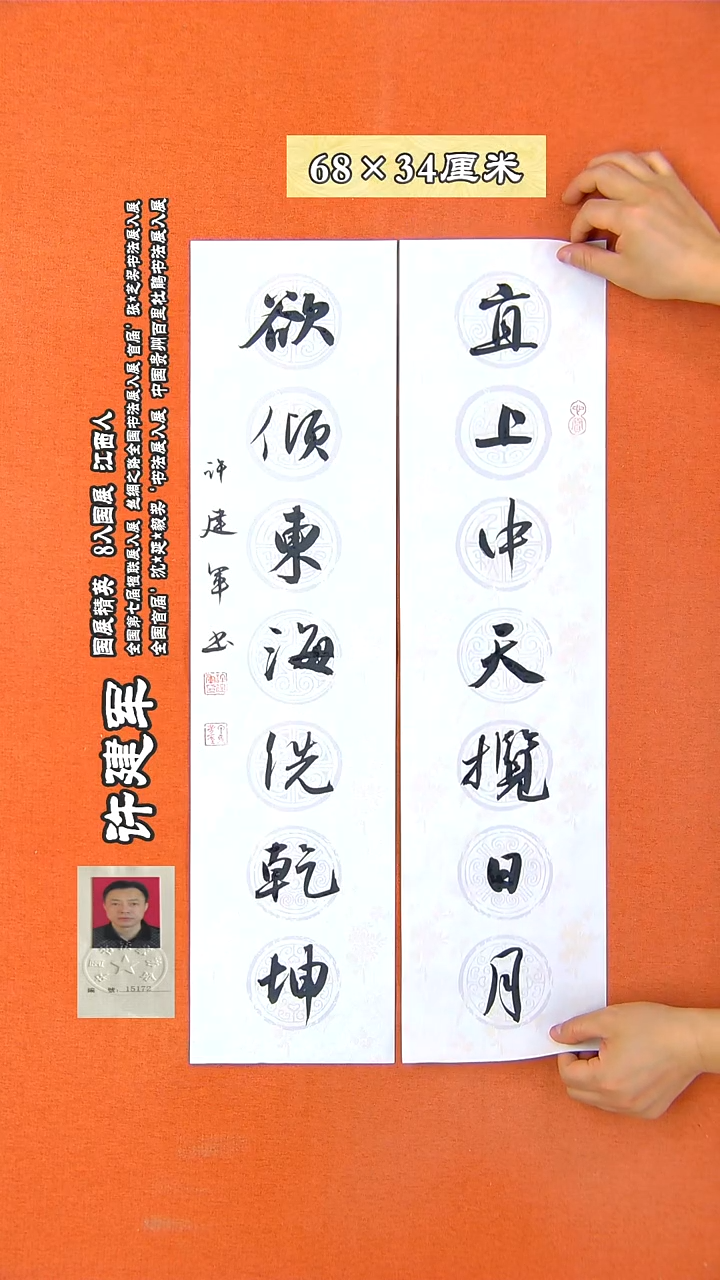 68×34厘米
直上中天攬日月
欲傾東海洗乾坤
许建军书
许建军
国展精英 8入国展 江西人
全国第七届楹联展入展 丝绸之路全国书法展入展 首届'张★芝奖书法展入展
全国首届'沈★延★毅奖'书法展入展 中国贵州百里杜鹃书法展入展
15172